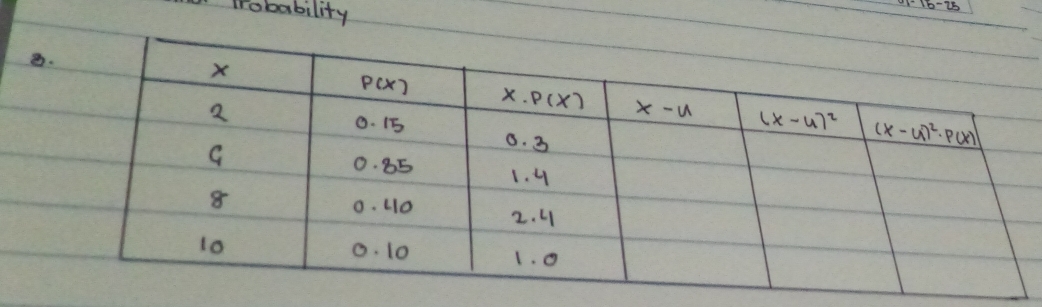 Probability
01-15-25
3.
X P(X) X.P(X) X-u (X-u)² (X-u)².P(X)
2 0.15 0.3
0.35 1.4
8 0.40 2.4
10 0.10 1.0